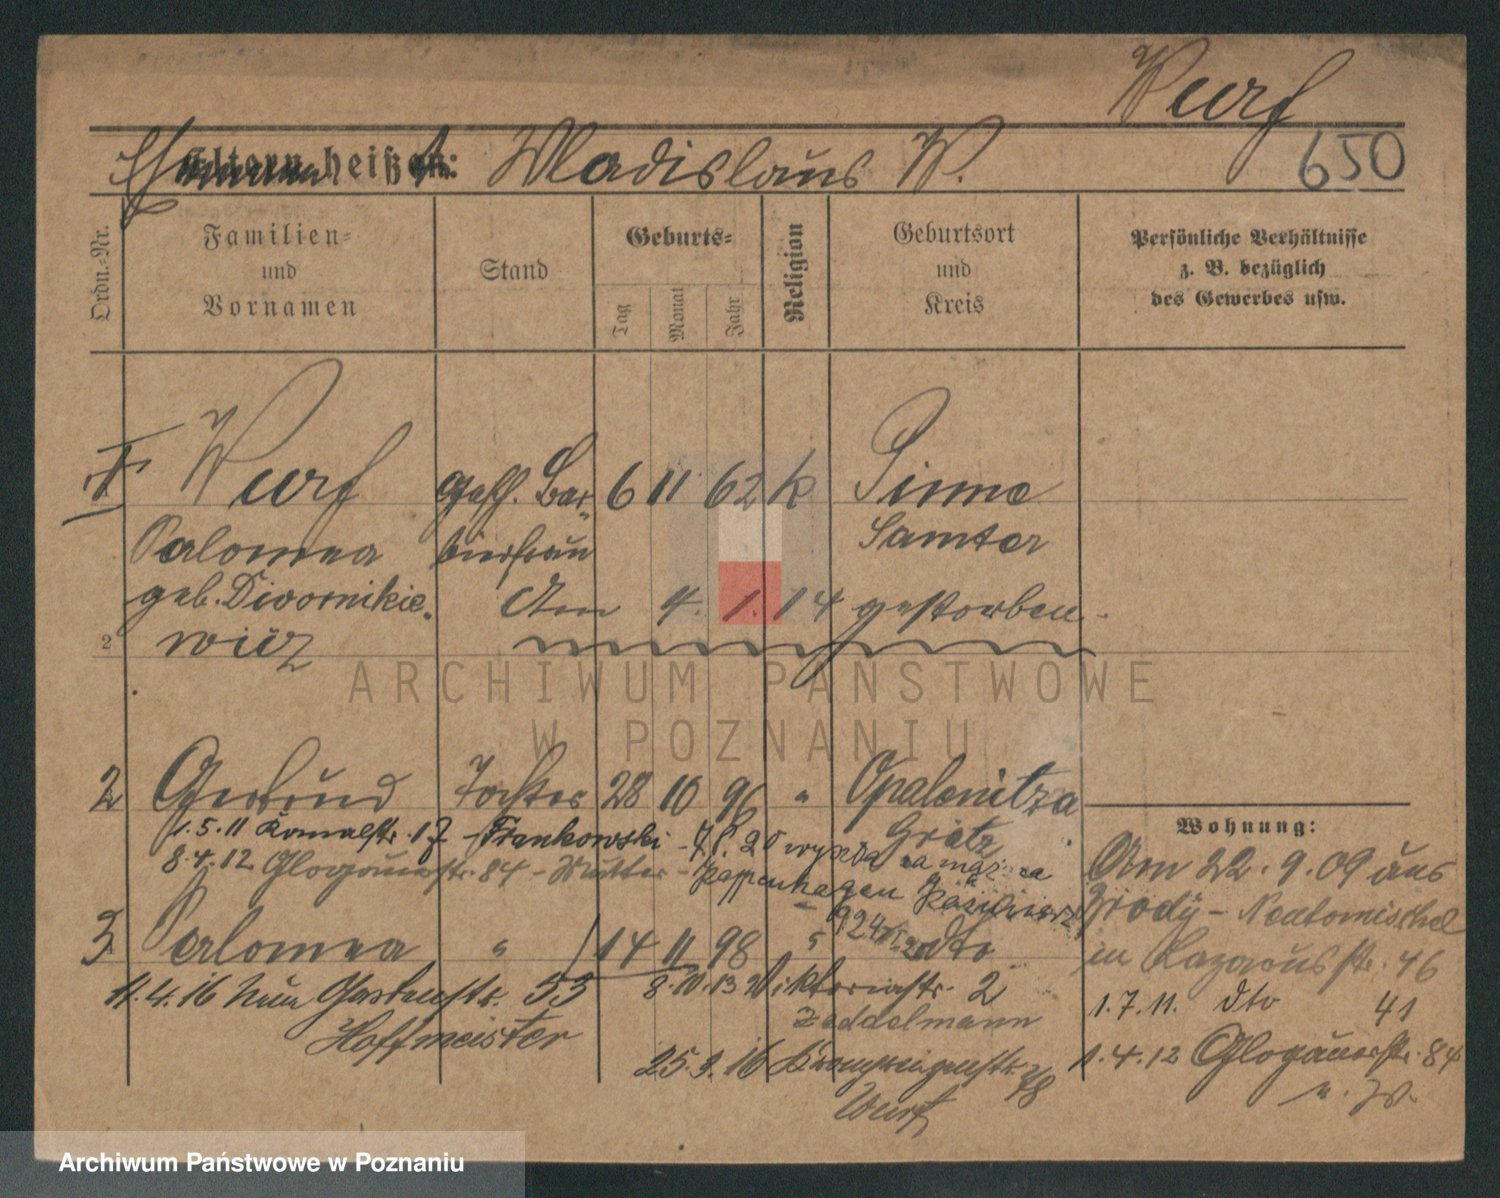 Wurf
650
Eltern heißen: Wladislaus W.
Ordn.-Nr.
Familien-
und
Vornamen
Stand
Geburts-
Tag
Monat
Jahr
Religion
Geburtsort
und
Kreis
Persönliche Verhältnisse
z. B. bezüglich
des Gewerbes usw.
1 Wurf gesch. Bar- 6 11 62 k Pinne
Salomea bierfrau Samter
geb. Dwornikie- Am 4. 1. 14 gestorben.
2
wicz
ARCHIWUM PAŃSTWOWE
W POZNANIU
2 Gertrud Tochter 28 10 96 " Opalenitza
Grätz
1.5.11 Kanalstr. 17 - Frankowski - wyszła za mąż za
8.4.12 Glogauerstr. 84 - Mutter - Kappenhagen
3 Salomea " 14 11 98 " dto
11.4.16 Neue Gartenstr. 53
Hoffmeister
8.10.13 Viktoriastr. 2
Zeddelmann
25.3.16 Kronprinzenstr. 78
Wurf
Wohnung:
Am 22.9.09 aus
Brody - Neutomischel
in Lazarusstr. 46
1.7.11. dto 41
1.4.12 Glogauerstr. 84
Archiwum Państwowe w Poznaniu